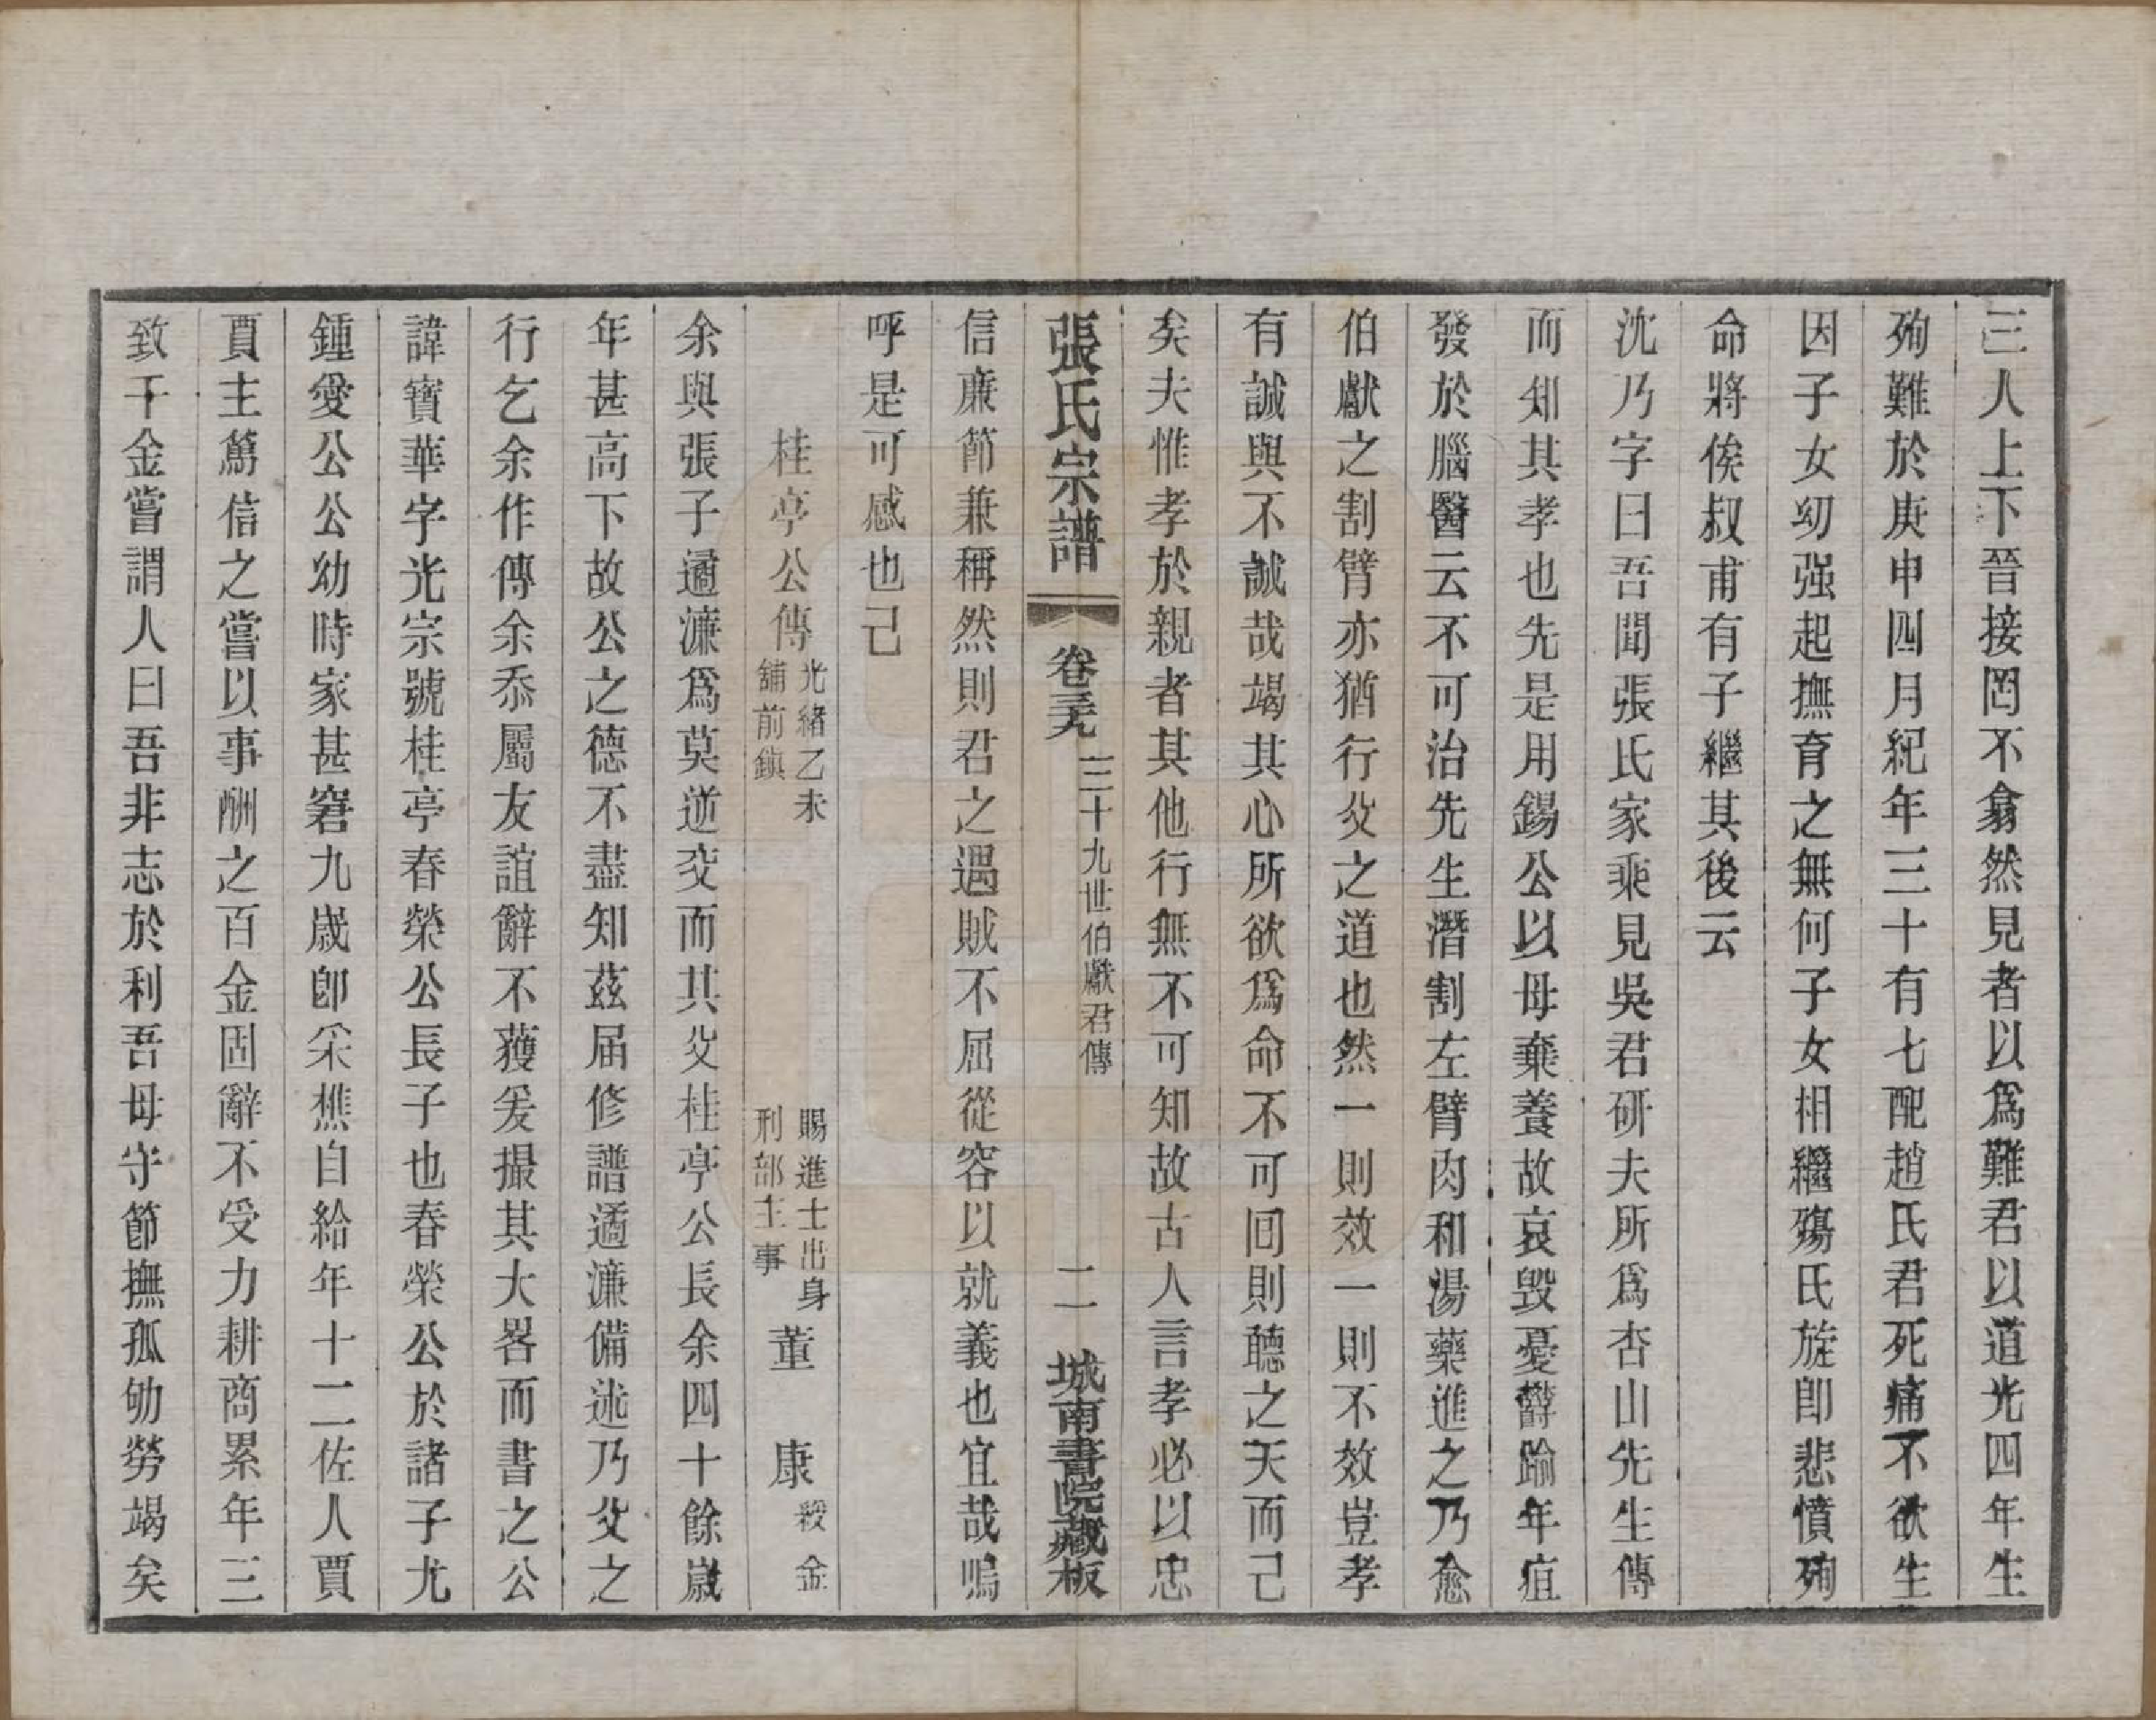 三人上下晉接罔不翕然見者以爲難君以道光四年生
殉難於庚申四月紀年三十有七配趙氏君死痛不欲生
因子女幼强起撫育之無何子女相繼殤氏旋卽悲憤殉
命將俟叔甫有子繼其後云
沈乃字曰吾聞張氏家乘見吳君研夫所爲杏山先生傳
而知其孝也先是用錫公以母棄養故哀毀憂鬱踰年疽
發於腦醫云不可治先生潛割左臂肉和湯藥進之乃愈
伯獻之割臂亦猶行父之道也然一則效一則不效豈孝
有誠與不誠哉竭其心所欲爲命不可回則聽之天而已
矣夫惟孝於親者其他行無不可知故古人言孝必以忠
張氏宗譜 卷三十九 三十九世伯獻君傳 二 城南書院藏板
信廉節兼稱然則君之遇賊不屈從容以就義也宜哉嗚
呼是可感也已
桂亭公傳 光緒乙未舖前鎭 賜進士出身刑部主事 董 康 綬金
余與張子遹濂爲莫逆交而其父桂亭公長余四十餘歲
年甚高下故公之德不盡知茲屆修譜遹濂備述乃父之
行乞余作傳余忝屬友誼辭不獲爰撮其大畧而書之公
諱寶華字光宗號桂亭春榮公長子也春榮公於諸子尤
鍾愛公公幼時家甚窘九歲卽采樵自給年十二佐人賈
賈主篤信之嘗以事酬之百金固辭不受力耕商累年三
致千金嘗謂人曰吾非志於利吾母守節撫孤劬勞竭矣